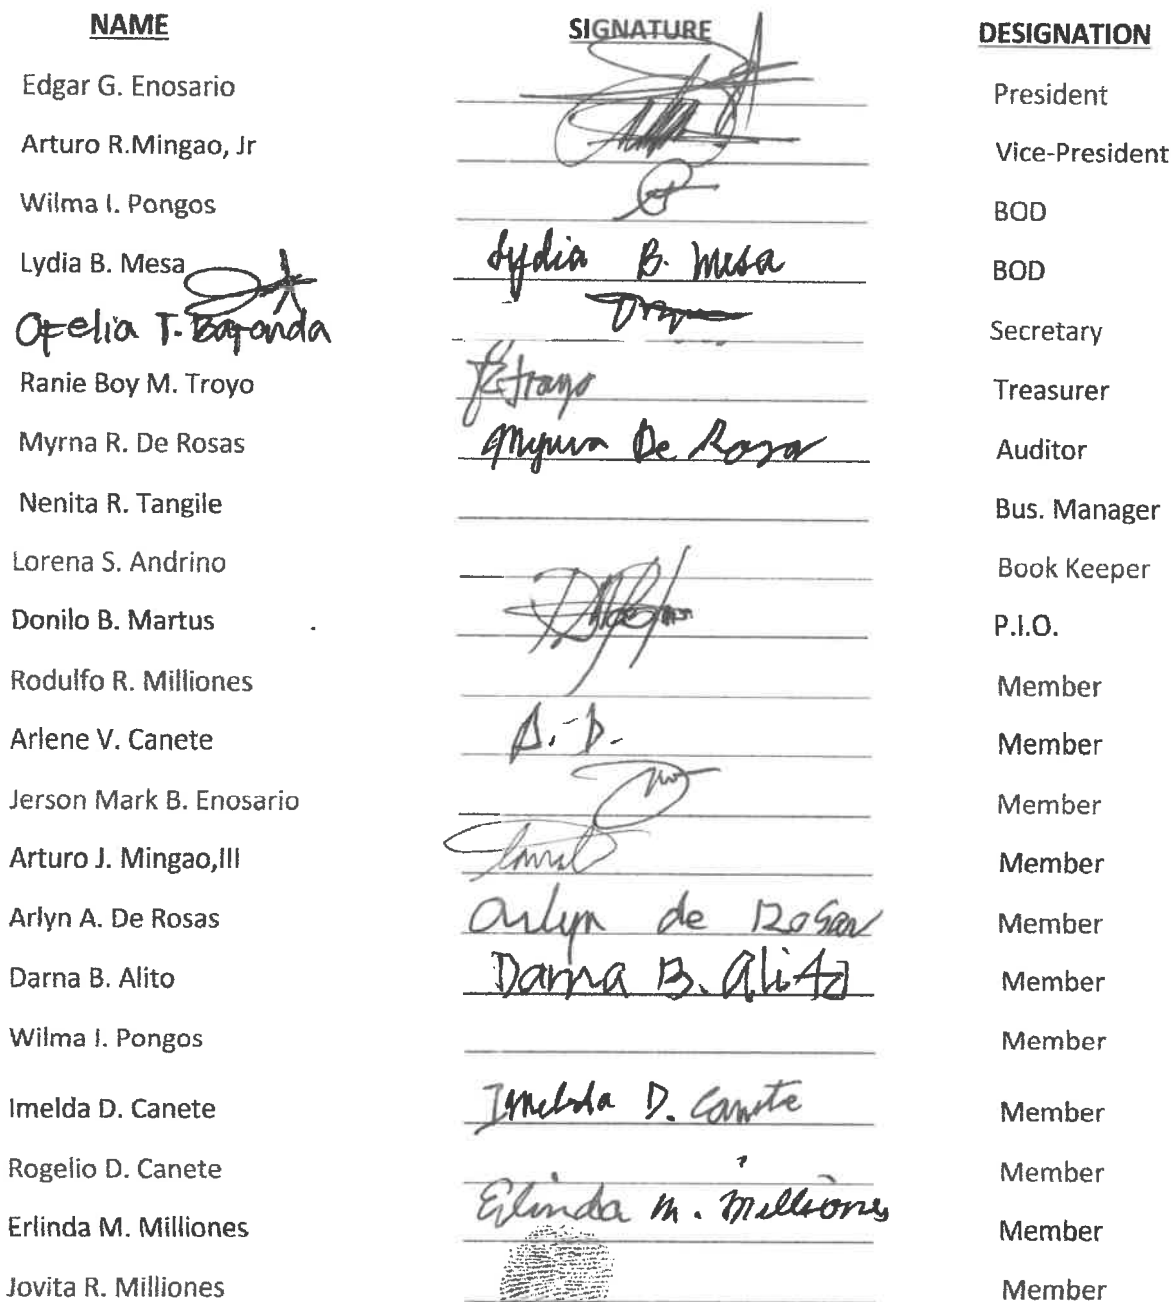 NAME SIGNATURE DESIGNATION
Edgar G. Enosario President
Arturo R.Mingao, Jr Vice-President
Wilma I. Pongos BOD
Lydia B. Mesa Lydia B. Mesa BOD
Ofelia T. Secretary
Ranie Boy M. Troyo Treasurer
Myrna R. De Rosas Myrna De Rosas Auditor
Nenita R. Tangile Bus. Manager
Lorena S. Andrino Book Keeper
Donilo B. Martus . P.I.O.
Rodulfo R. Milliones Member
Arlene V. Canete Member
Jerson Mark B. Enosario Member
Arturo J. Mingao,III Member
Arlyn A. De Rosas Arlyn de Rosas Member
Darna B. Alito Darna B. Alito Member
Wilma I. Pongos Member
Imelda D. Canete Imelda D. Canete Member
Rogelio D. Canete Member
Erlinda M. Milliones Erlinda M. Milliones Member
Jovita R. Milliones Member